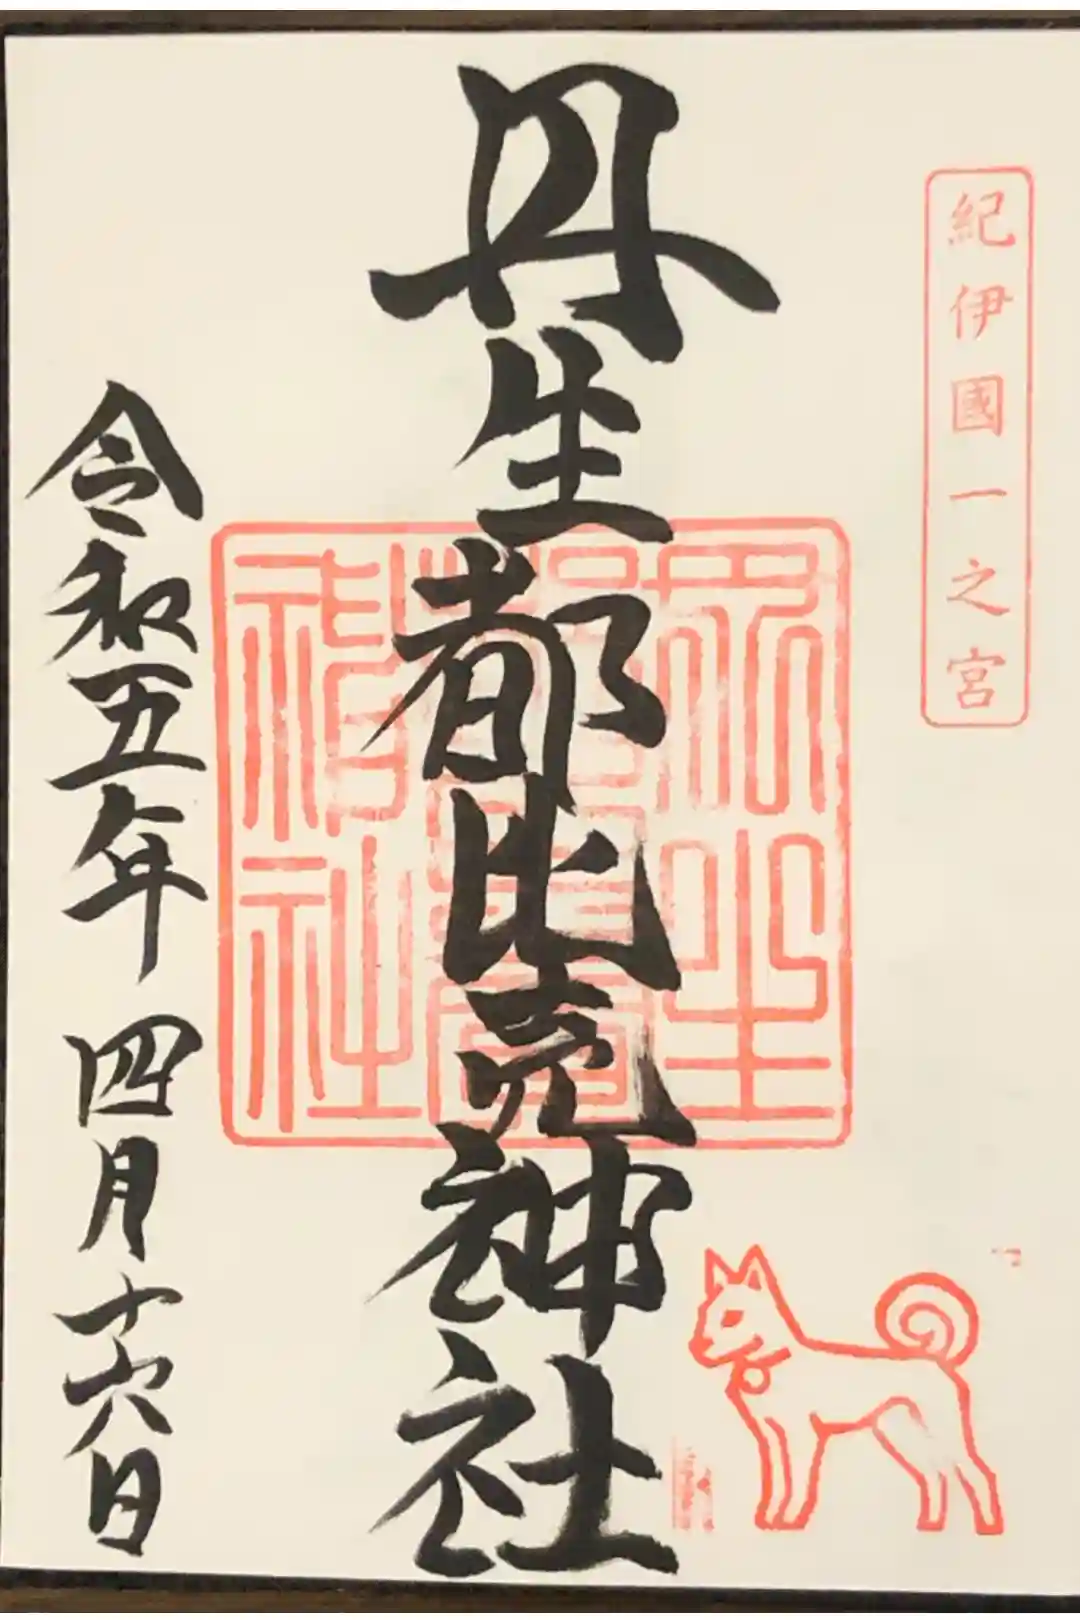 紀伊國一之宮
丹生都比売神社
丹生都比賣神社
令和五年 四月十六日